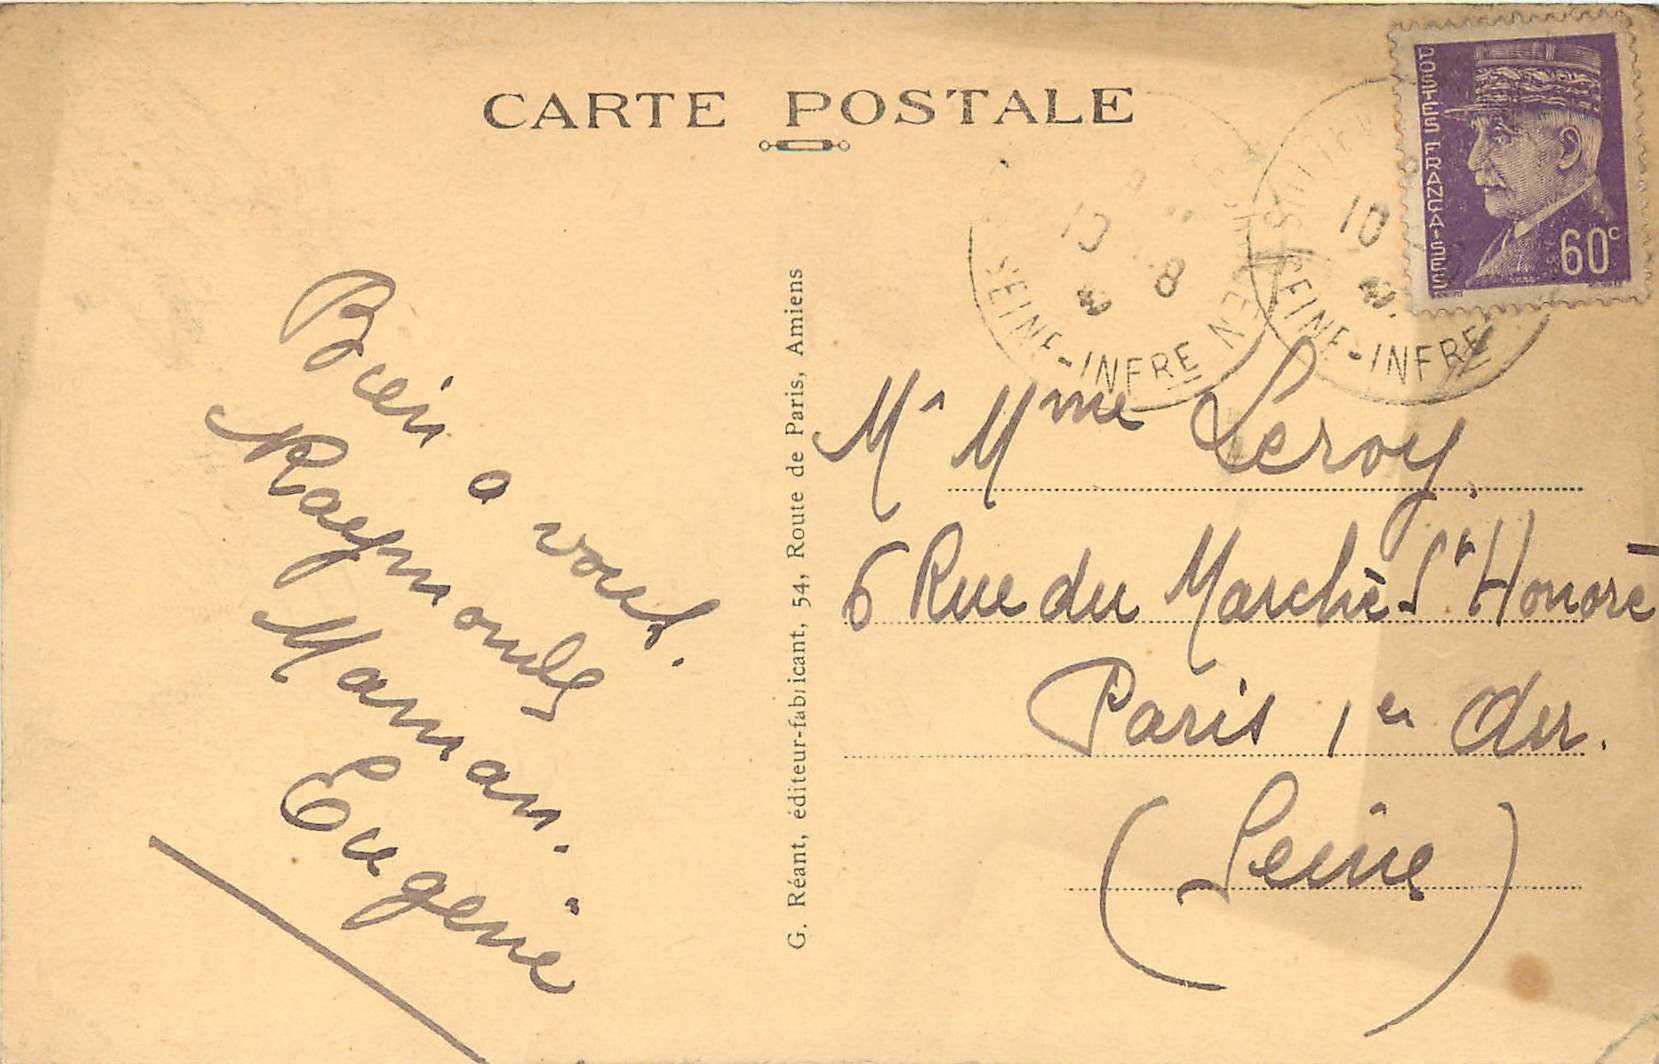 CARTE POSTALE
POSTES FRANÇAISES
60c
10
8
SEINE-INFRE
10
SEINE-INFRE
Bien a vous.
Raymonde
Maman.
Eugenie
G. Réant, éditeur-fabricant, 54, Route de Paris, Amiens
Mr Mme Leroy.
6 Rue du Marché St Honoré
Paris 1er Arr.
(Seine)